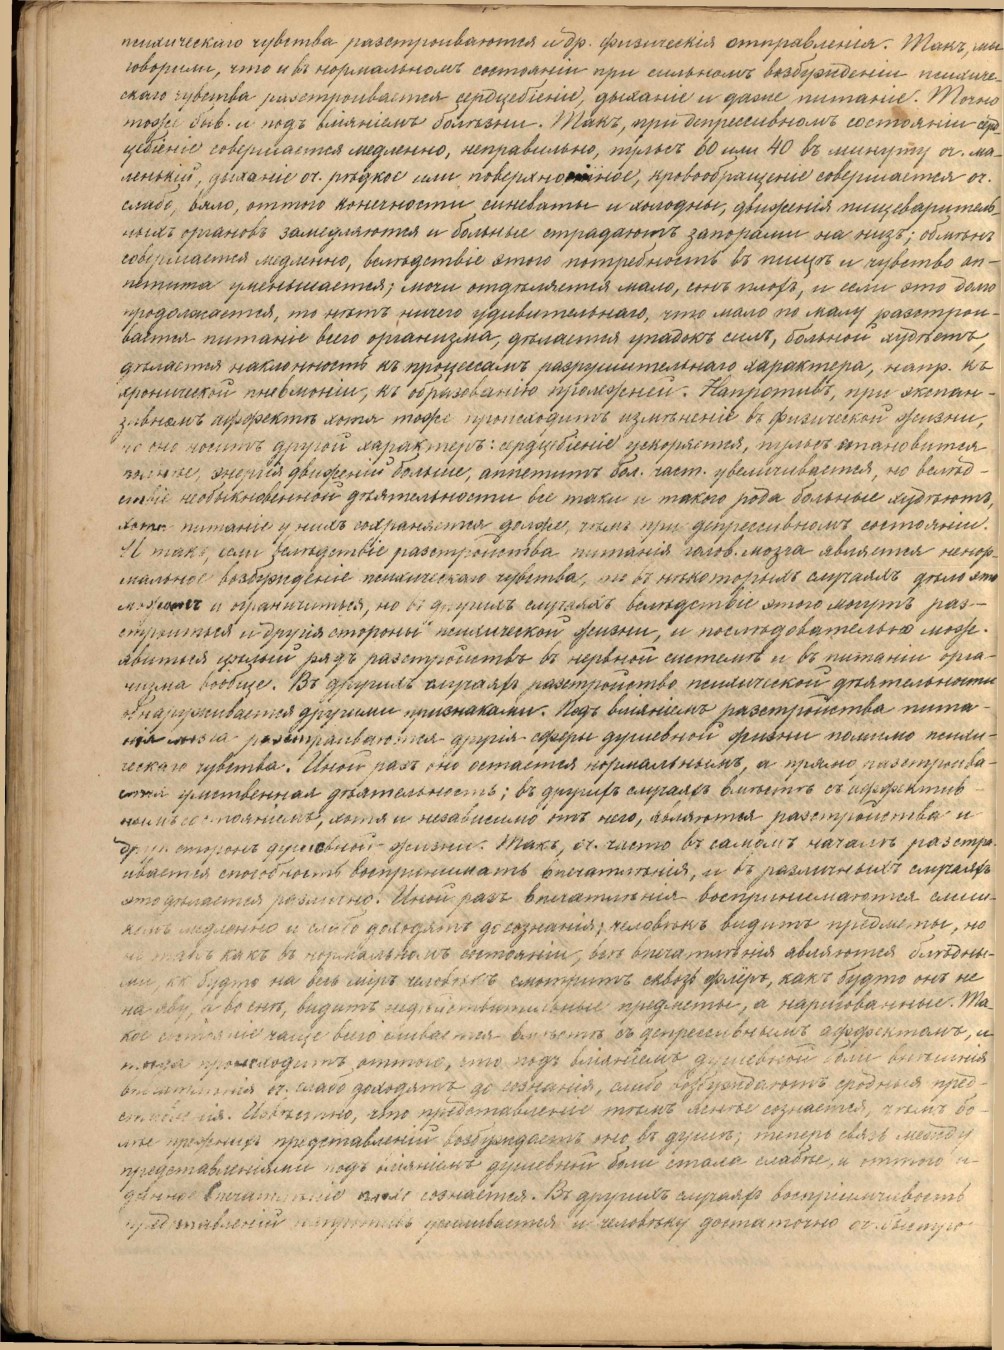 психическаго чувства разстроиваются и др. физическія отправленія. Такъ, мы
говорили, что и въ нормальномъ состояніи при сильномъ возбужденіи психиче-
скаго чувства разстроивается сердцебіеніе, дыханіе и даже питаніе. Точно
тоже быв. и подъ вліяніемъ болѣзни. Такъ, при депрессивномъ состояніи серд-
цебіеніе совершается медленно, неправильно, пульсъ 60 или 40 въ минуту оч. ма-
ленькій, дыханіе оч. рѣдкое или поверхностное, кровообращеніе совершается оч.
слабо, вяло, оттого конечности синеваты и холодны, движенія пищеваритель-
ныхъ органовъ замедляются и больные страдаютъ запорами на низъ; обмѣнъ
совершается медленно, вслѣдствіе этого потребность въ пищѣ и чувство ап-
петита уменьшается; мочи отдѣляется мало, сонъ плохъ, и если это долго
продолжается, то нѣтъ ничего удивительнаго, что мало по малу разстрои-
вается питаніе всего организма, дѣлается упадокъ силъ, больной худѣетъ,
дѣлается наклонность къ процессамъ разрушительнаго характера, напр. къ
хронической пневмоніи, къ образованію пролежней. Напротивъ, при экспан-
зивномъ аффектѣ хотя тоже происходитъ измѣненіе въ физической жизни,
но оно носитъ другой характеръ: сердцебіеніе ускоряется, пульсъ становится
полнѣе, энергія движеній больше, аппетитъ бол. част. увеличивается, но вслѣд-
ствіе необыкновенной дѣятельности все таки и такого рода больные худѣютъ,
хотя питаніе у нихъ сохраняется дольше, чѣмъ при депрессивномъ состояніи.
И такъ, если вслѣдствіе разстройства питанія голов. мозга является ненор-
мальное возбужденіе психическаго чувства, то въ нѣкоторыхъ случаяхъ дѣло это
можетъ и ограничиться, но въ другихъ случаяхъ вслѣдствіе этого могутъ раз-
строиться и другія стороны психической жизни, и послѣдовательно може.
явиться цѣлый рядъ разстройствъ въ нервной системѣ и въ питаніи орга-
низма вообще. Въ другихъ случаяхъ разстройство психической дѣятельности
обнаруживается другими признаками. Подъ вліяніемъ разстройства пита-
нія мозга разстраиваются другія сферы душевной жизни помимо психи-
ческаго чувства. Иной разъ оно остается нормальнымъ, а прямо разстроива-
ется умственная дѣятельность; въ другихъ случаяхъ вмѣстѣ съ аффектив-
нымъ состояніемъ, хотя и независимо отъ него, являются разстройства и
др. сторонъ душевной жизни. Такъ, оч. часто въ самомъ началѣ разстро-
ивается способность воспринимать впечатлѣнія, и въ различныхъ случаяхъ
это дѣлается различно. Иной разъ впечатлѣнія воспринимаются слиш-
комъ медленно и слабо доходятъ до сознанія; человѣкъ видитъ предметы, но
не такъ какъ въ нормальномъ состояніи, всѣ впечатлѣнія являются блѣдны-
ми, какъ будто на весь міръ человѣкъ смотритъ сквозь флёръ, какъ будто онъ не
на яву, а во снѣ, видитъ недѣйствительные предметы, а нарисованные. Та-
кое состояніе чаще всего бываетъ вмѣстѣ съ депрессивнымъ аффектомъ, и
тогда происходитъ оттого, что подъ вліяніемъ душевной боли внѣшнія
впечатлѣнія оч. слабо доходятъ до сознанія, слабо возбуждаютъ сродныя пред-
ставленія. Извѣстно, что представленіе тѣмъ яснѣе сознается, чѣмъ бо-
лѣе прежнихъ представленій возбуждаетъ оно въ душѣ; теперь связь между
представленіями подъ вліяніемъ душевной боли стала слабѣе, и оттого и
данное впечатлѣніе сознается. Въ другихъ случаяхъ воспріимчивость
представленій напротивъ усиливается и человѣку достаточно оч. быстро